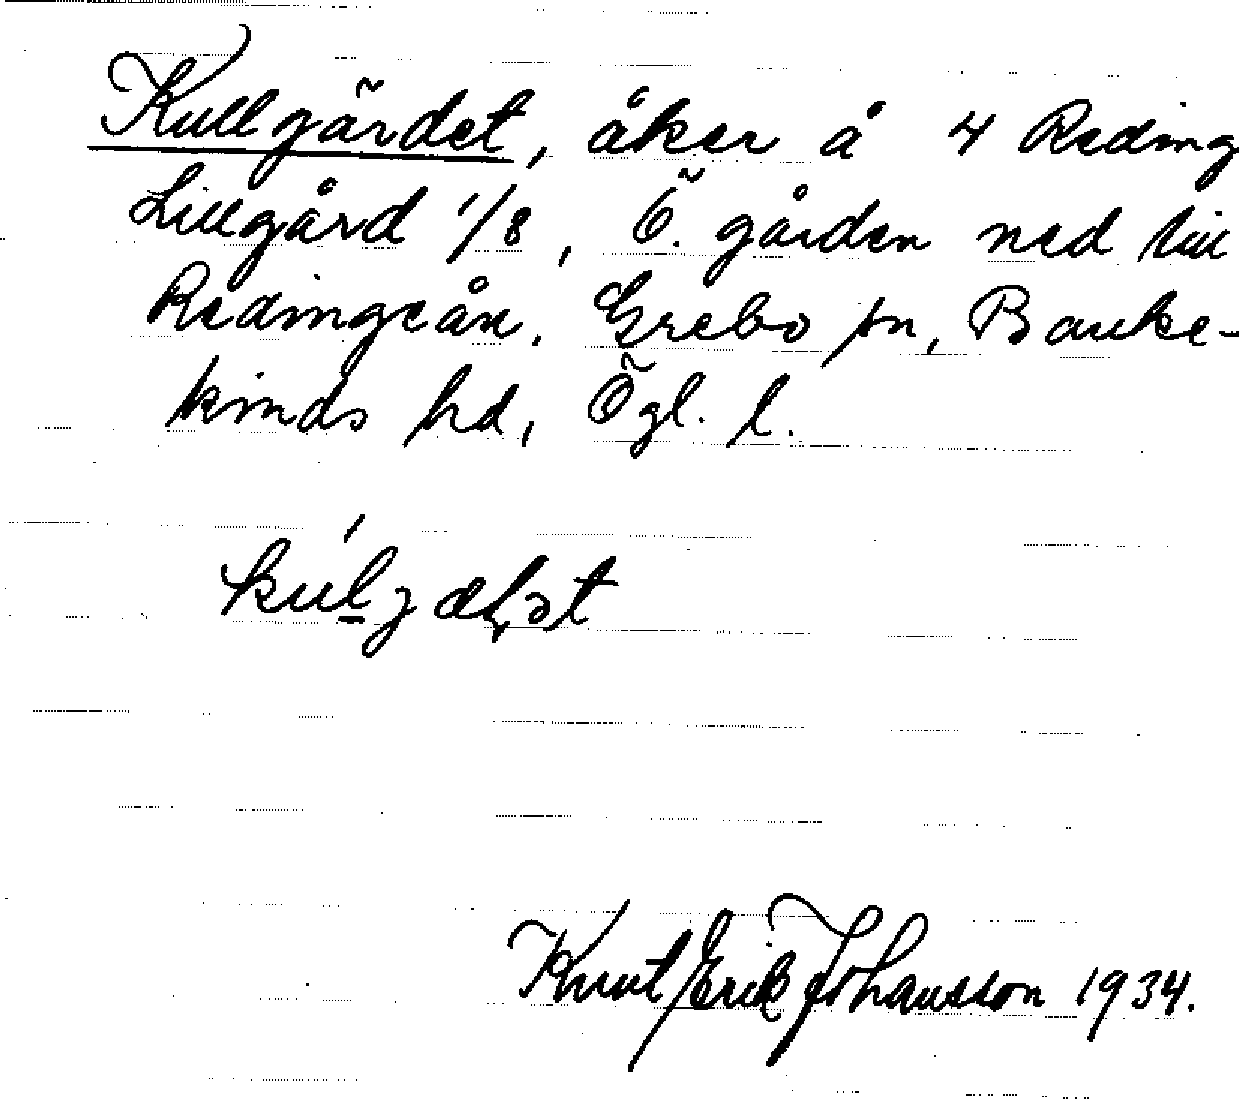 Kullgärdet, åker å 4 Reding
Lillgård 1/8, Ö. gården ned till
Redingeån. Grebo sn, Banke-
kinds hd, Ögl. l.
Knut Erik Johansson 1934.